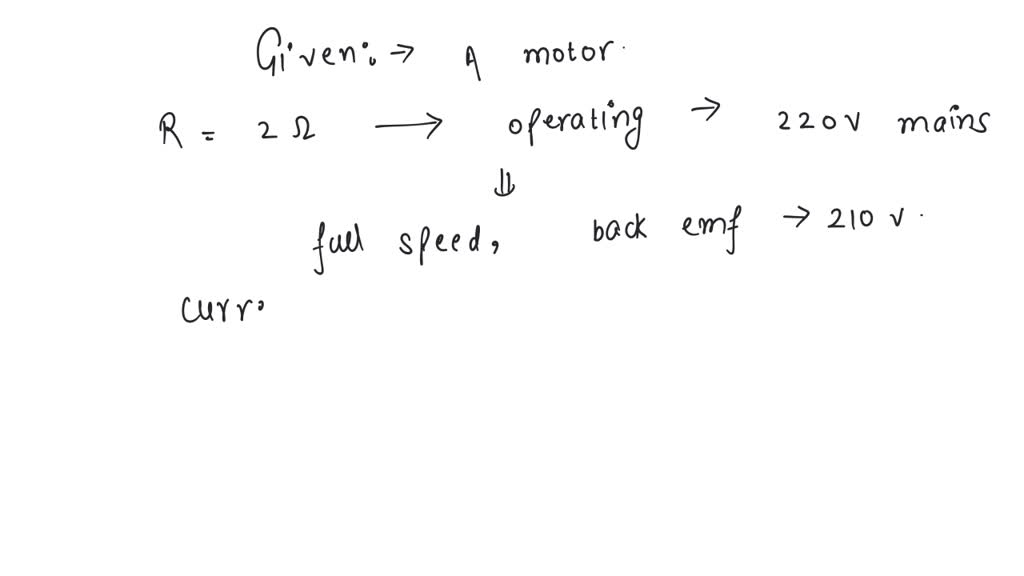 Given:→ A motor.
R = 2 Ω ⟶ operating → 220V mains
⇓
full speed, back emf → 210 v.
curr